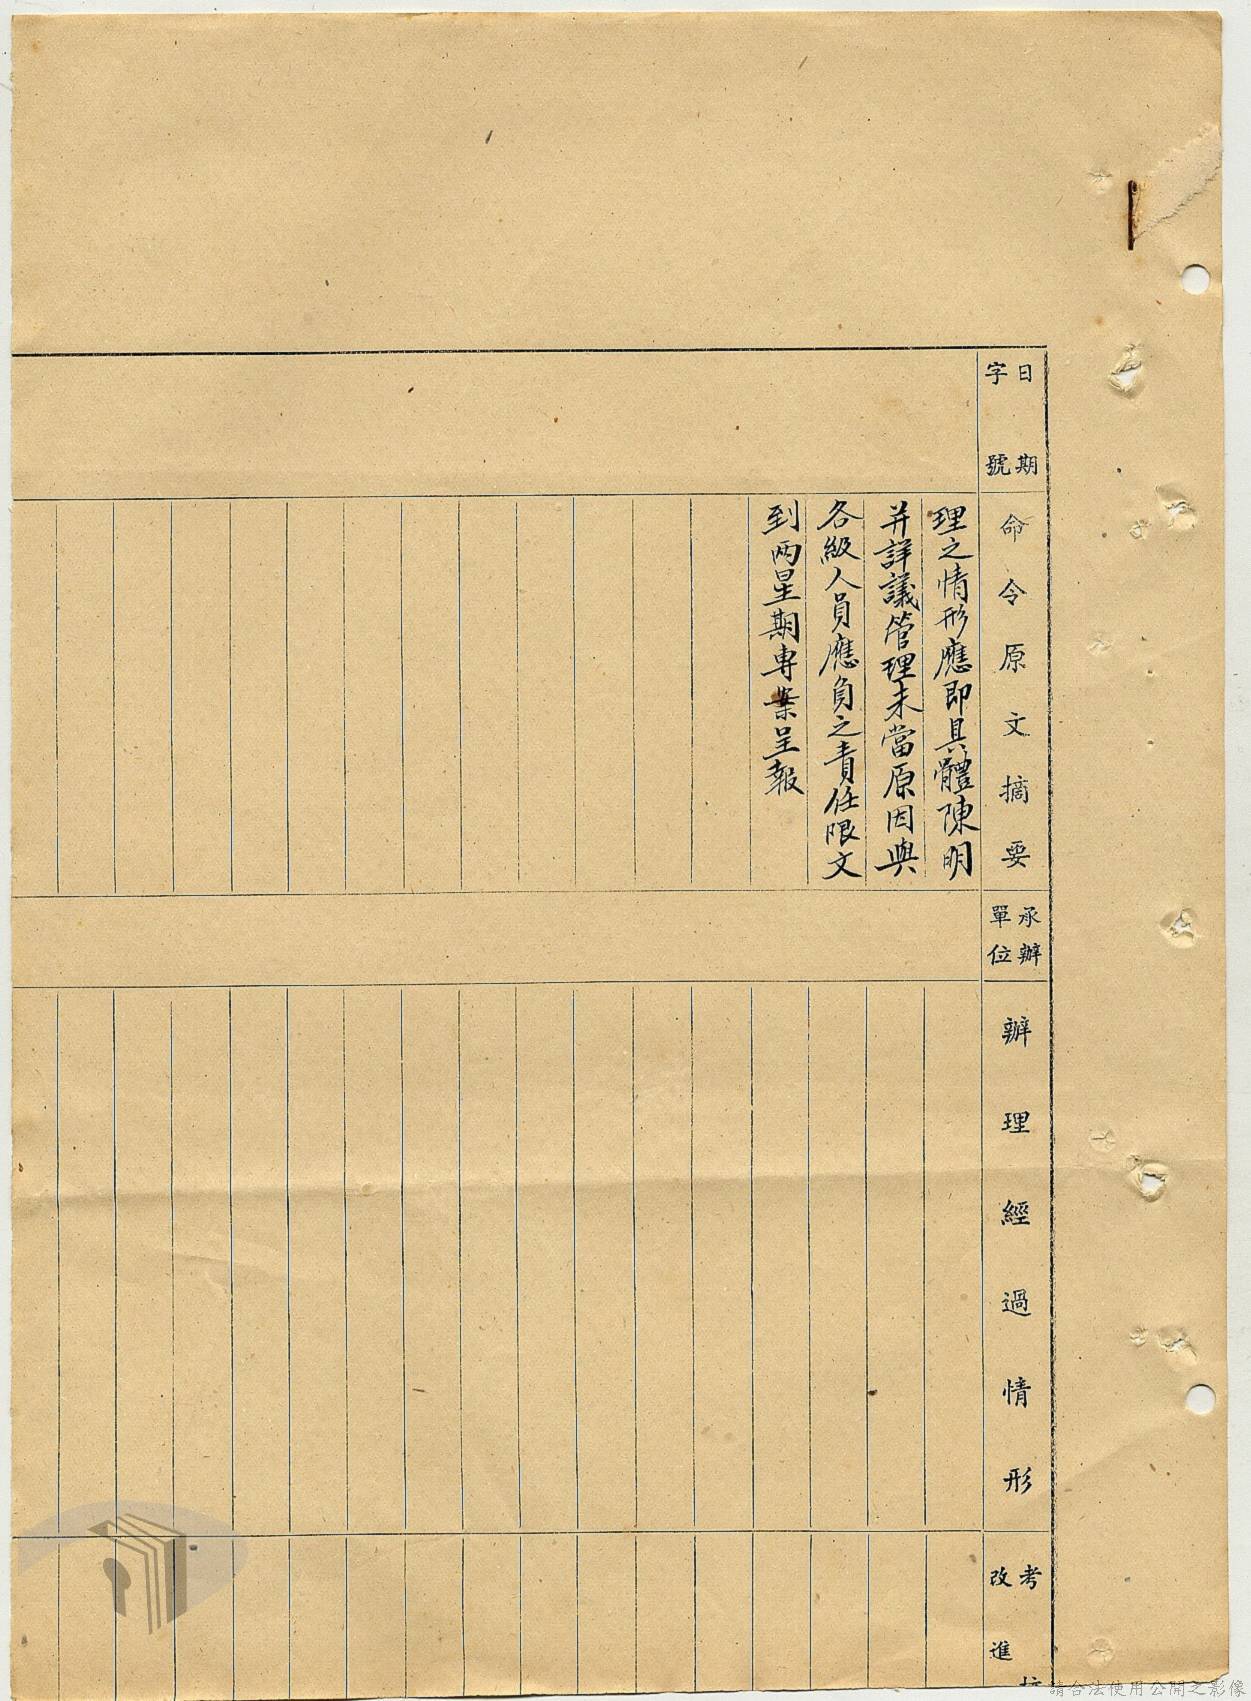 日期
字號
命令原文摘要
承辦
單位
辦理經過情形
考
改進
理之情形應即具體陳明
并詳議管理未當原因與
各級人員應負之責任限文
到两星期專案呈報
請合法使用公開之影像